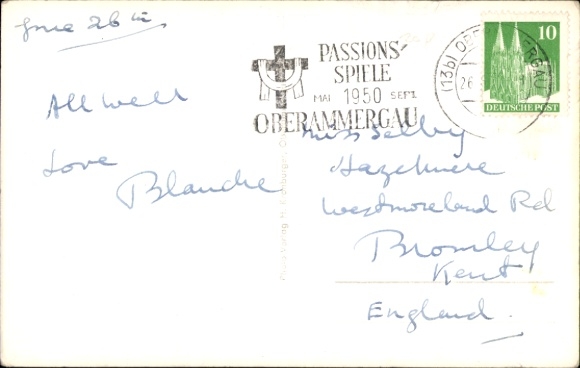 June 26th
All Well
Love
Blanche
PASSIONS-
SPIELE
MAI 1950 SEPT.
OBERAMMERGAU
(13b) OBERAMMERGAU
26
10
DEUTSCHE POST
Miss Selby
Hazelmere
Westmoreland Rd
Bromley
Kent
England.